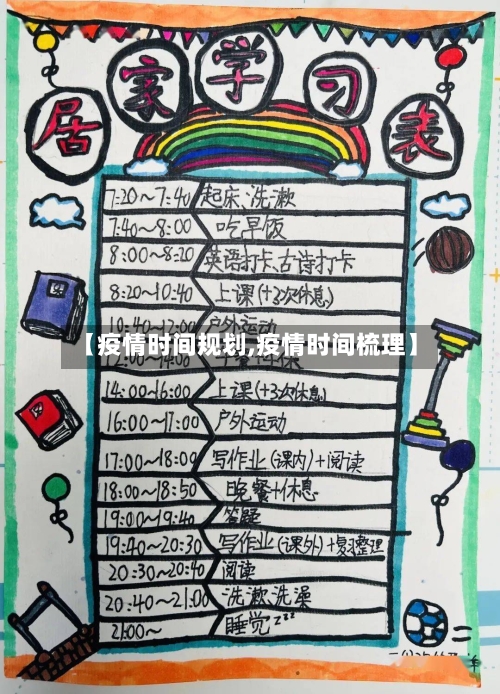 居家学习表
7:20~7:40 起床、洗漱
7:40~8:00 吃早饭
8:00~8:20 英语打卡、古诗打卡
8:20~10:40 上课(+3次休息)
10:40~12:00 户外运动
【疫情时间规划,疫情时间梳理】
14:00~16:00 上课(+3次休息)
16:00~17:00 户外运动
17:00~18:00 写作业(课内)+阅读
18:00~18:50 晚餐+休息
19:00~19:40
19:40~20:30 写作业(课外)+复习整理
20:30~20:40 阅读
20:40~21:00 洗漱、洗澡
21:00~ 睡觉 zzz